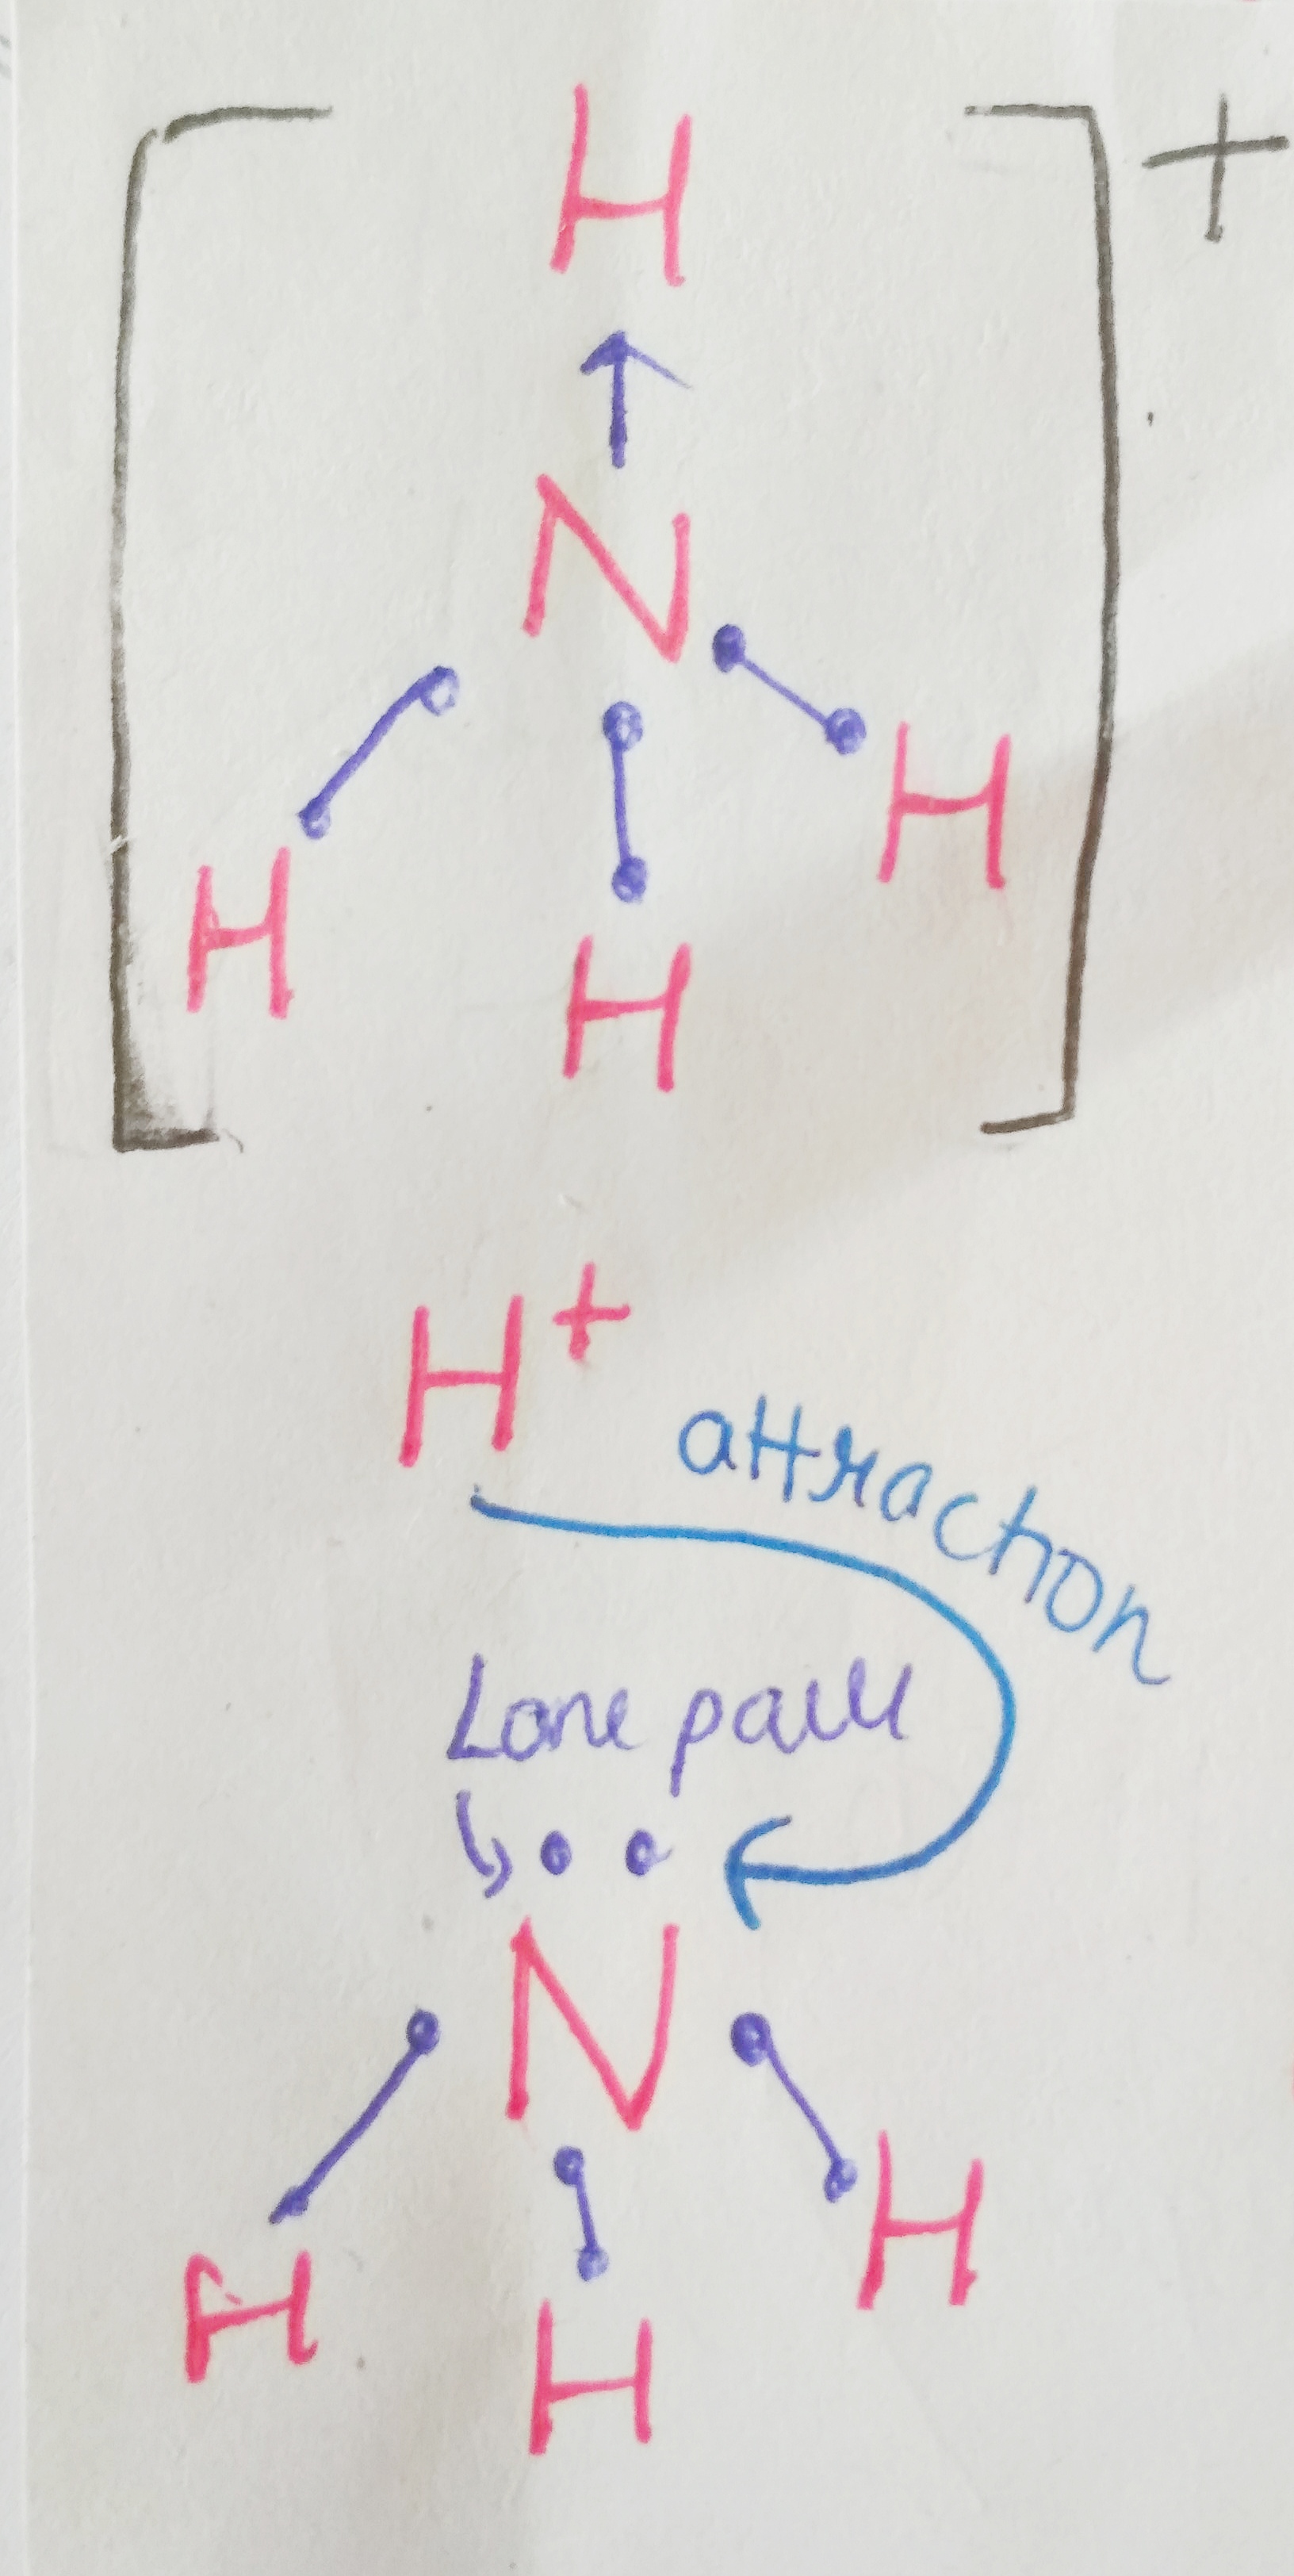 H +
N
H
H
H
H+
attraction
Lone pair
N
H
H
H